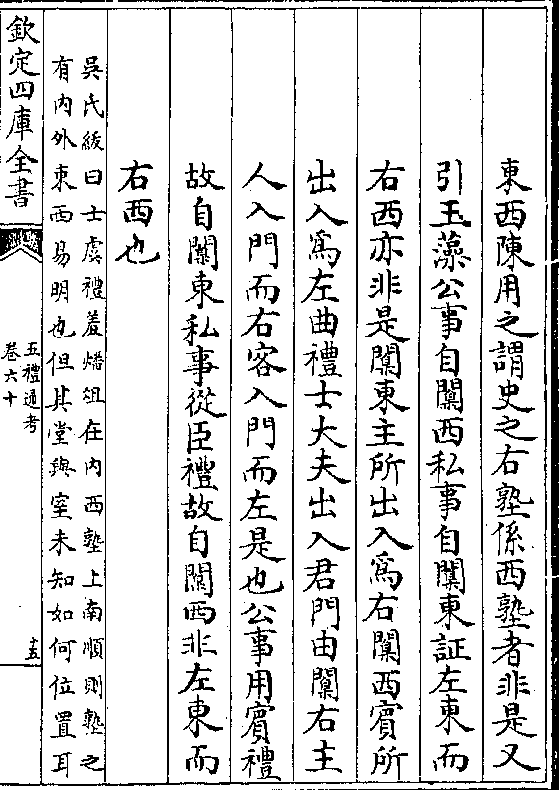 東西陳用之謂史之右塾係西塾者非是又
引玉藻公事自闑西私事自闑東証左東而
右西亦非是闑東主所出入爲右闑西賓所
出入爲左曲禮士大夫出入君門由闑右主
人入門而右客入門而左是也公事用賓禮
故自闑東私事從臣禮故自闑西非左東而
右西也
吳氏紱曰士虞禮羞燔俎在内西塾上南順則塾之
有内外東西易明也但其堂與室未知如何位置耳
欽定四庫全書
五禮通考
卷六十
十五